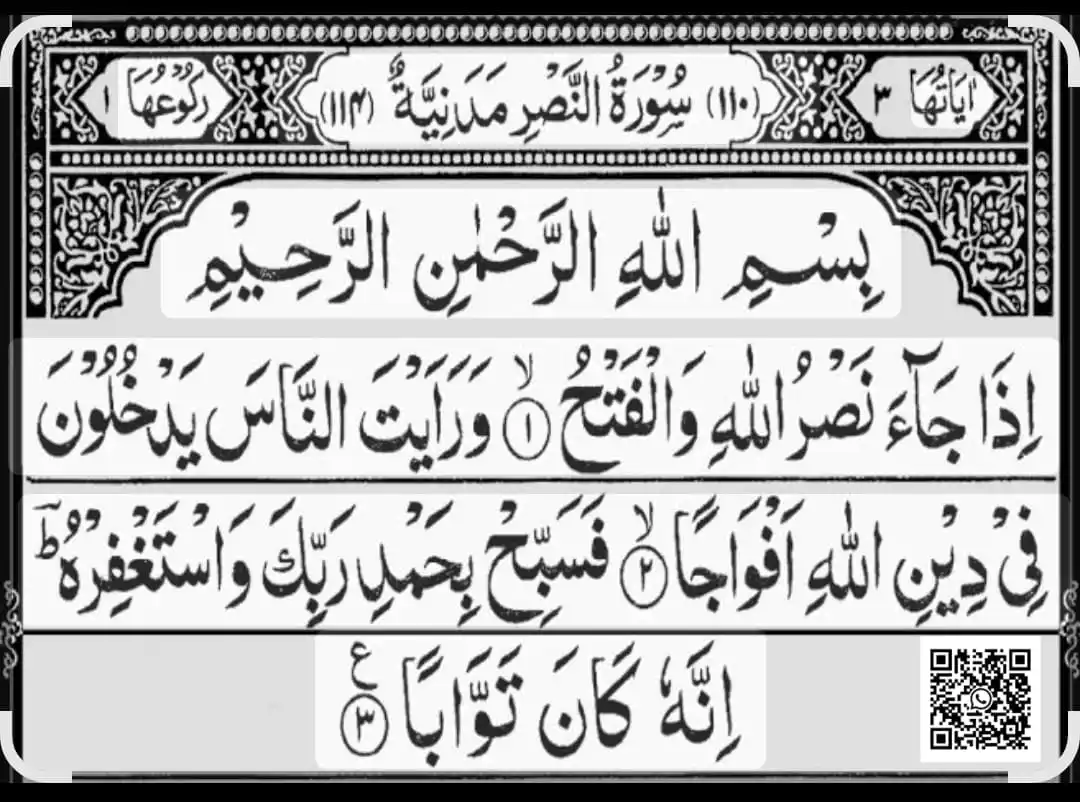 اٰيَاتُهَا ٣ (١١٠) سُوْرَةُ النَّصْرِ مَدَنِيَّةٌ (١١۴) رُكُوْعُهَا ١
بِسْمِ اللّٰهِ الرَّحْمٰنِ الرَّحِيْمِ
اِذَا جَآءَ نَصْرُ اللّٰهِ وَالْفَتْحُ ۙ﴿١﴾ وَرَاَيْتَ النَّاسَ يَدْخُلُوْنَ
فِيْ دِيْنِ اللّٰهِ اَفْوَاجًا ۙ﴿٢﴾ فَسَبِّحْ بِحَمْدِ رَبِّكَ وَاسْتَغْفِرْهُ ؕ
اِنَّهٗ كَانَ تَوَّابًا ﴿٣﴾ ع